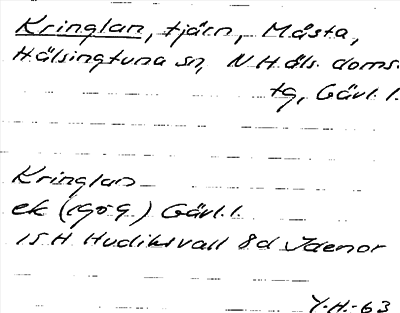 Kringlan, tjärn, Måsta,
Hälsingtuna sn, N Häls. doms.
tg, Gävl. l.
Kringlan
ek (1909) Gävl. l.
15H Hudiksvall 8d Idenor
Y.H.-63